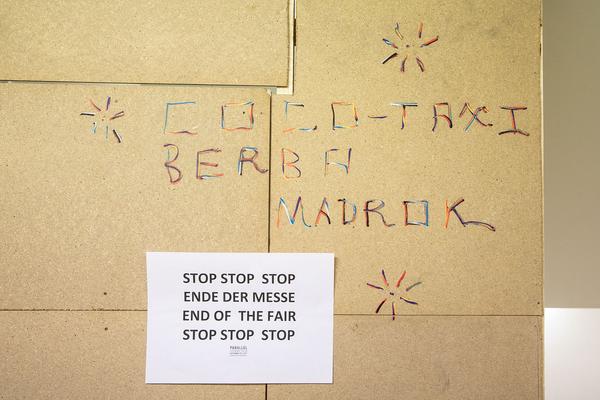 COCO-TAXI
BERBA
MADROK
STOP STOP STOP
ENDE DER MESSE
END OF THE FAIR
STOP STOP STOP
PARALLEL